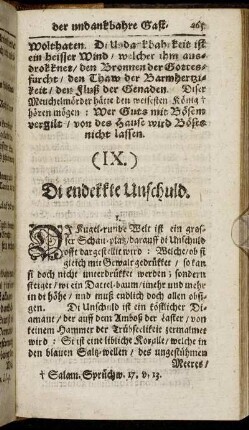 der undankbahre Gast. 465
Wolthaten. Di Undankbahrkeit ist
ein heisser Wind / welcher ihm aus-
drokknet / den Bronnen der Gottes-
furcht / den Thaw der Barmhertzi-
keit / den Fluß der Genaden. Diser
Meuchelmörder hätte den weisesten König †
hören mögen: Wer Guts mit Bösem
vergilt / von des Hause wird Böses
nicht lassen.
(IX.)
Di endekkte Unschuld.
1.
DI Kugel-runde Welt ist ein gros-
ser Schau-platz / darauf di Unschuld
oft dargestellt wird: Welche / ob si
gleich mit Gewalt gedrükket / so kan
si doch nicht unterdrükket werden; sondern
steiget / wi ein Dattel-baum / imehr und mehr
in di höhe / und muß endlich doch allen obsi-
gen. Di Unschuld ist ein köstlicher Dia-
mant / der auf dem Amboß der Laster / von
keinem Hammer der Trübseelikeit zermalmet
wird: Si ist eine libliche Koralle / welche in
den blauen Saltz-wellen / des ungestühmen
Meeres /
† Salam. Sprüchw. 17. v. 13.